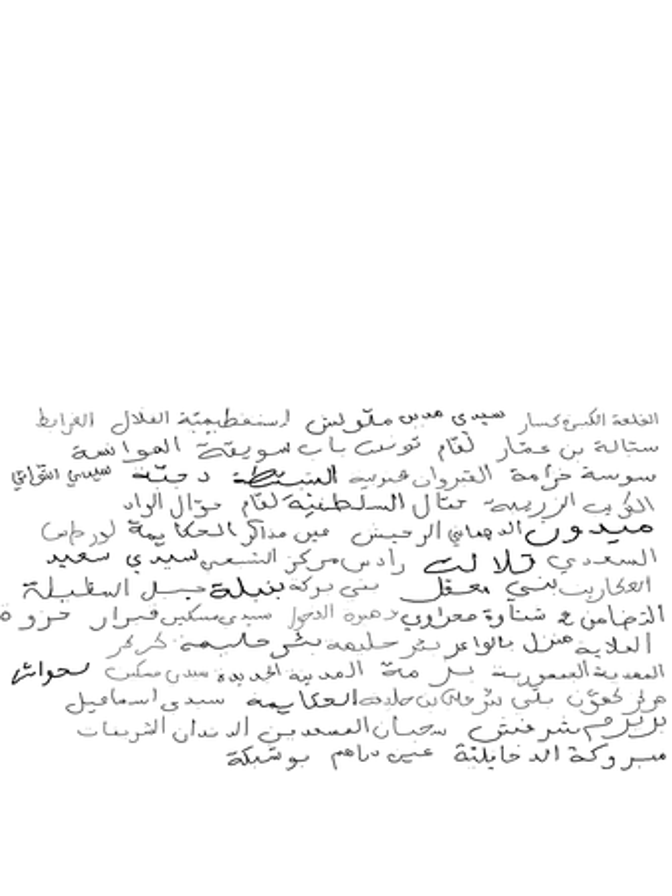 القلعة الكبرى كسار سيدي مدين ملولش الفلال القرايط
ستالة بن عمار لقام تونس باب سويقة الموانسة
سوسة خزامة القيروان السبيطة دجبة سيدي التواتي
الكريب الزريبة تتال السلطنية لقام حوال الواد
ميدون الدهماني الرحيش عين مذاكر الحكايمة
السعدي تلالت رادس مركز الشعبي سيدي سعيد
العكاريت بني معقل بني بركة بنبلة جبل السقليلة
التضامن شناوة معزاوي زهرة سيدي مسكين حزوة
العلاية منزل بالواعر بئر حليمة بئر حليمة
المعدية المنصورية بئر مة المدينة الجديدة سيدي مسكين سحواش
بن خليفة الحكايمة سيدي اسماعيل
سحبان المسعدين الدندان الشريفات
مبروكة الدخايلية عين دراهم بوشبكة